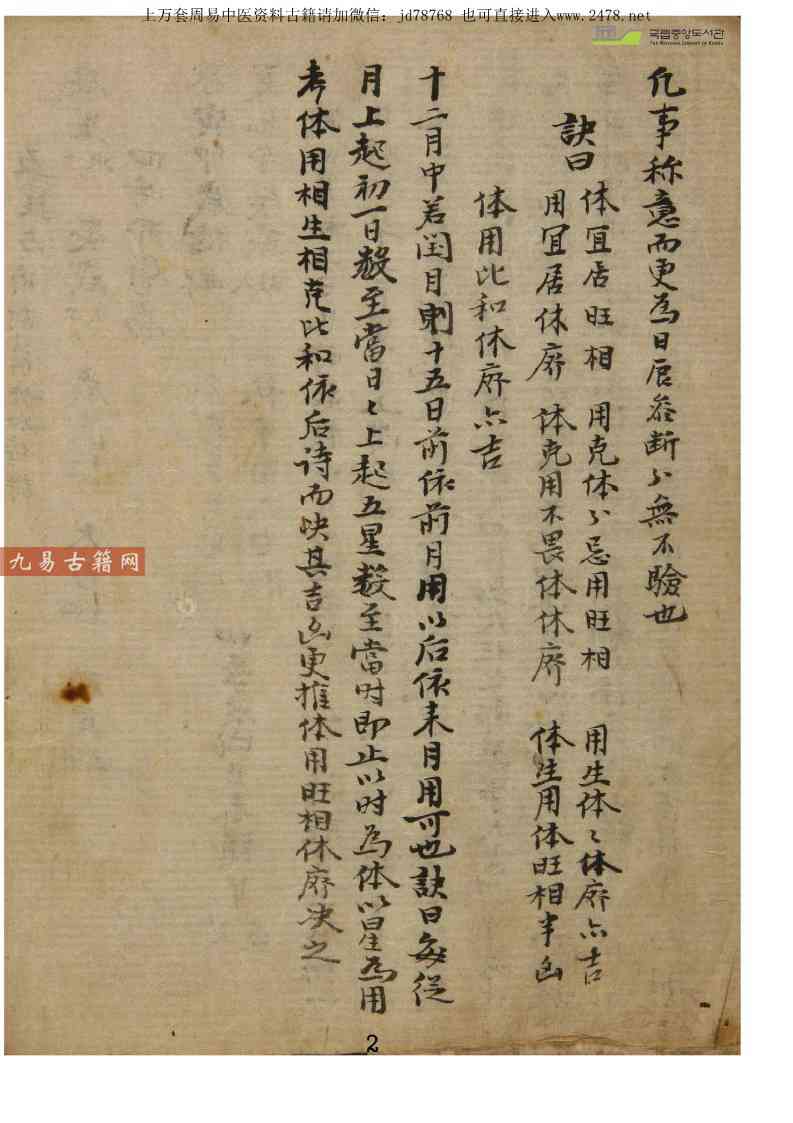 上万套周易中医资料古籍请加微信：jd78768 也可直接进入www.2478.net
국립중앙도서관
THE NATIONAL LIBRARY OF KOREA
凢事称意而更為日辰叅断少無不驗也
訣曰
体冝居旺相 用克体少忌用旺相 用生体〻体廃亦吉
用冝居休廃 体克用不畏体休廃 体生用体旺相半凶
体用比和休廃亦吉
十二月中若闰月則十五日前依前月用以后依来月用可也訣曰每従
月上起初一日数至當日〻上起五星数至當时即止以时為体以星為用
考体用相生相克比和依后诗而决其吉凶更推体用旺相休廃决之
九易古籍网
2